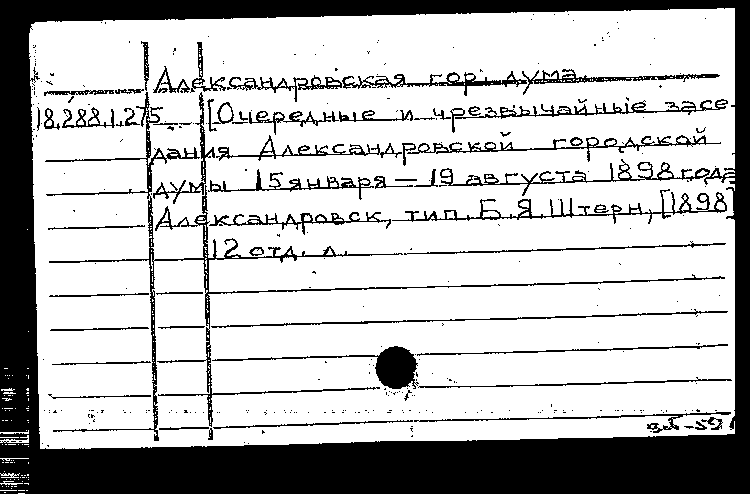 Александровская гор. дума
18.288.1.275 [Очередные и чрезвычайные засе-
дания Александровской городской
думы 15 января — 19 августа 1898 года
Александровск, тип. Б.Я.Штерн, [1898]
12 отд. л.